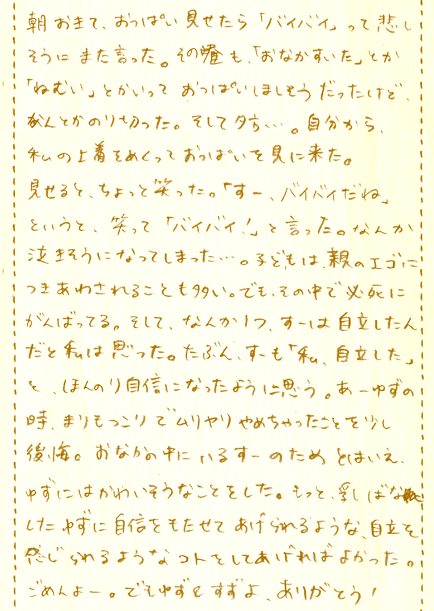 朝おきて、おっぱい見せたら「バイバイ」って悲し
そうにまた言った。その後も、「おなかすいた」とか
「ねむい」とかいっておっぱいほしそうだったけど、
なんとかのり切った。そして夕方…。自分から、
私の上着をめくっておっぱいを見に来た。
見せると、ちょっと笑った。「すー、バイバイだね」
というと、笑って「バイバイ！」と言った。なんか
泣きそうになってしまった…。子どもは、親のエゴに
つきあわされることも多い。でも、その中で必死に
がんばってる。そして、なんか1つ、すーは自立したん
だと私は思った。たぶん、すーも「私、自立した」
と、ほんのり自信になったように思う。あーゆずの
時、まりもっこりでムリヤリやめちゃったことを少し
後悔。おなかの中にいるすーのためとはいえ、
ゆずにはかわいそうなことをした。もっと、乳ばなれ
したゆずに自信をもたせてあげられるような、自立を
感じられるようなコトをしてあげればよかった。
ごめんよー。でもゆずとすずよ、ありがとう！